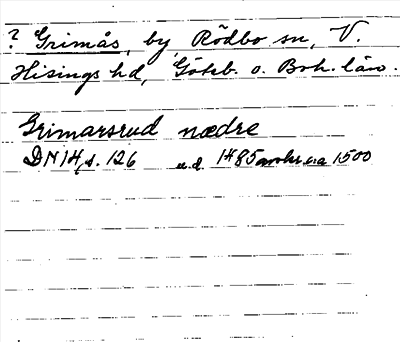 ? Grimås, by Rödbo sn, V.
Hisings hd, Göteb. o. Boh. län.
Grimarsrud nædre
DN 14, s. 126 u.d. 1485 omkr. 1500